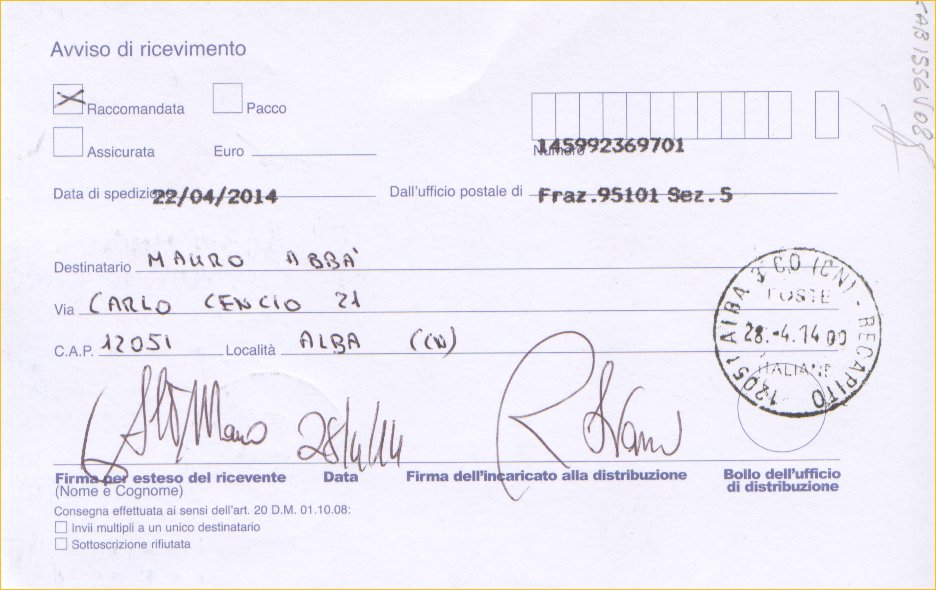 Avviso di ricevimento
Raccomandata Pacco
Assicurata Euro
145992369701
Numero
Data di spedizione 22/04/2014 Dall'ufficio postale di Fraz.95101 Sez.5
Destinatario MAURO ABBA'
Via CARLO CENCIO 21
C.A.P. 12051 Località ALBA (CN)
12051 ALBA 3 CD (CN) - RECAPITO
POSTE
28.-4.14 00
ITALIANE
28/4/14
Firma per esteso del ricevente Data Firma dell'incaricato alla distribuzione Bollo dell'ufficio
(Nome e Cognome) di distribuzione
Consegna effettuata ai sensi dell'art. 20 D.M. 01.10.08:
Invii multipli a un unico destinatario
Sottoscrizione rifiutata